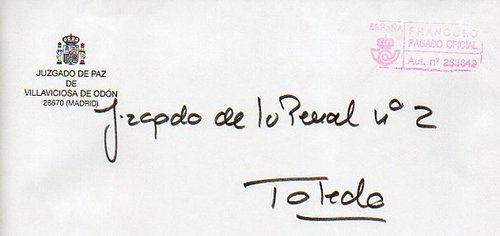 JUZGADO DE PAZ
DE
VILLAVICIOSA DE ODÓN
28670 (MADRID)
ESPAÑA
FRANQUEO
PAGADO OFICIAL
Aut. nº 283849
Juzgado de lo Penal nº 2
Toledo